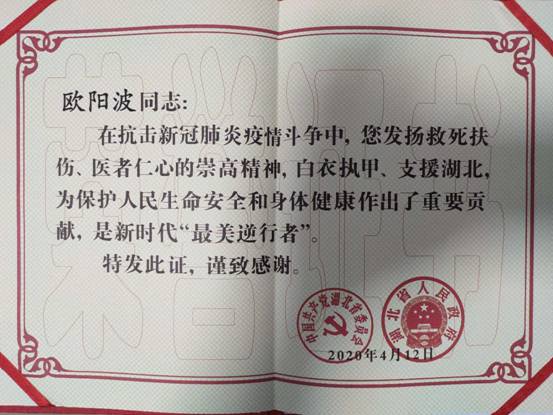 欧阳波同志：
在抗击新冠肺炎疫情斗争中，您发扬救死扶
伤、医者仁心的崇高精神，白衣执甲、支援湖北，
为保护人民生命安全和身体健康作出了重要贡
献，是新时代“最美逆行者”。
特发此证，谨致感谢。
中国共产党湖北省委员会
湖北省人民政府
2020年4月12日
荣誉证书